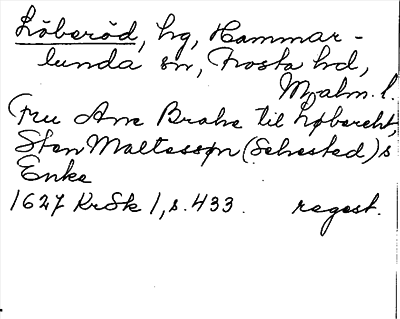 Löberöd, hg, Hammar-
lunda sn, Frosta hd,
Malm. l.
Fru Ane Brahe til Løbereht,
Sten Maltessøn (Sehested)s
Enke
1627 KrSk 1, s. 433. regest.